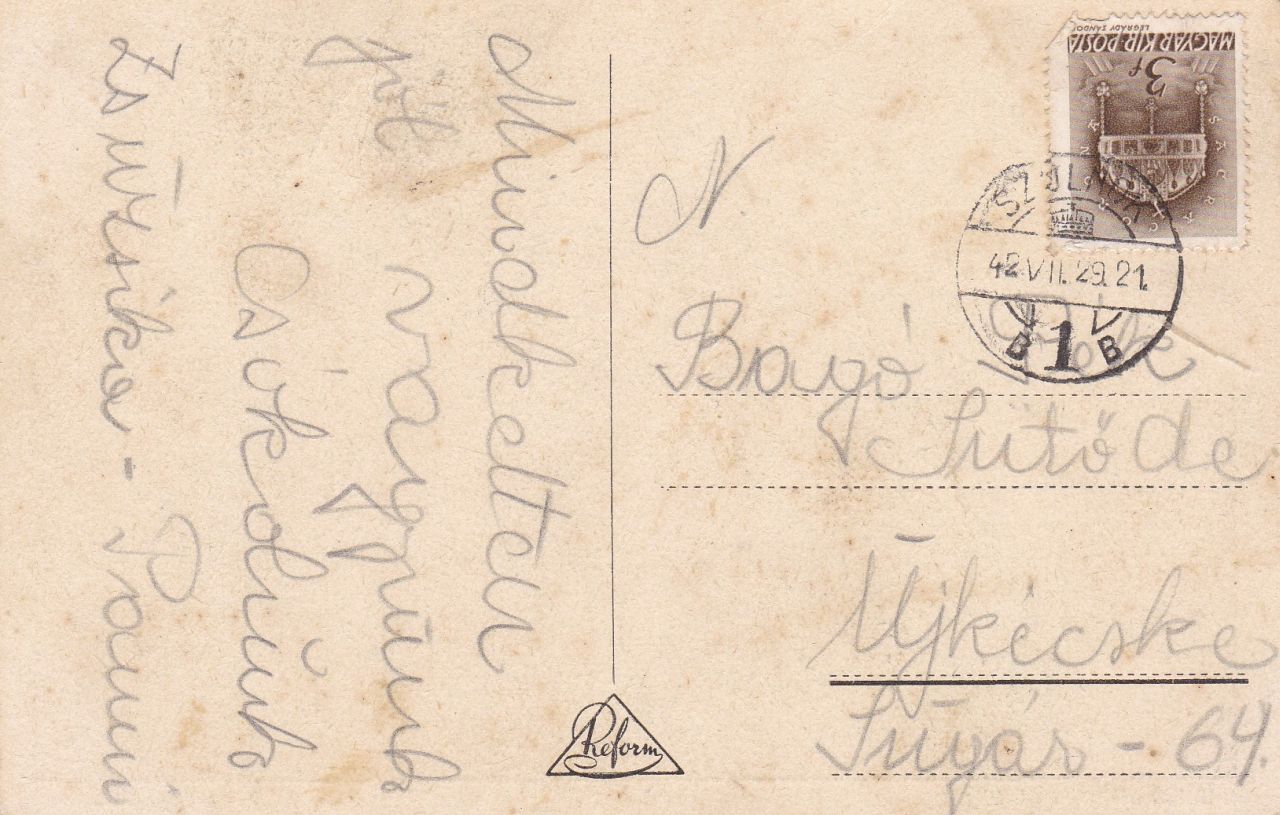 Mindketten
jól vagyunk
Csókolunk
Zsuzsika - Panni
N
Bagó
Sütőde
Újkécske
Sugár - 64.
MAGYAR KIR. POSTA
LÉGRÁDY SÁNDOR
3f
SACRA CORONA
SZOLNOK
42 VII. 29. 21.
B 1 B
Reform